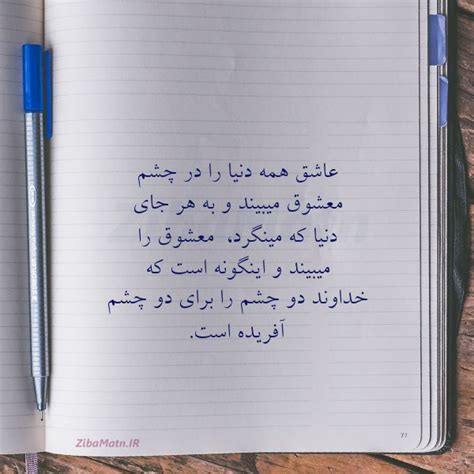 عاشق همه دنیا را در چشم
معشوق میبیند و به هر جای
دنیا که مینگرد، معشوق را
میبیند و اینگونه است که
خداوند دو چشم را برای دو چشم
آفریده است.
ZibaMatn.IR